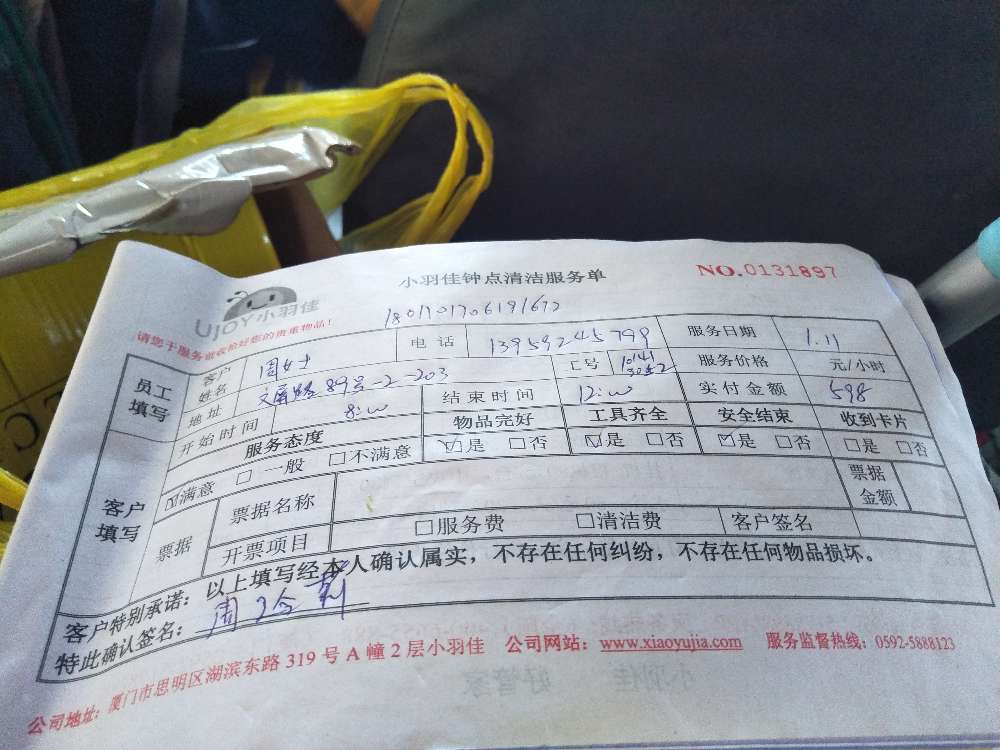 小羽佳钟点清洁服务单 NO.0131897
UJOY小羽佳
请您于服务前收检好您的贵重物品！
员工填写 客户姓名 周女士 电话 13959245799 服务日期 1.11
地址 89号-2-203 工号 服务价格 元/小时
开始时间 8: 结束时间 12: 实付金额 598
客户填写 服务态度 物品完好 工具齐全 安全结束 收到卡片
☑满意 □一般 □不满意 ☑是 □否 ☑是 □否 ☑是 □否 □是 □否
票据 票据名称 票据金额
开票项目 □服务费 □清洁费 客户签名
客户特别承诺：以上填写经本人确认属实，不存在任何纠纷，不存在任何物品损坏。
特此确认签名：周
公司地址：厦门市思明区湖滨东路319号A幢2层小羽佳 公司网站：www.xiaoyujia.com 服务监督热线：0592-5888123